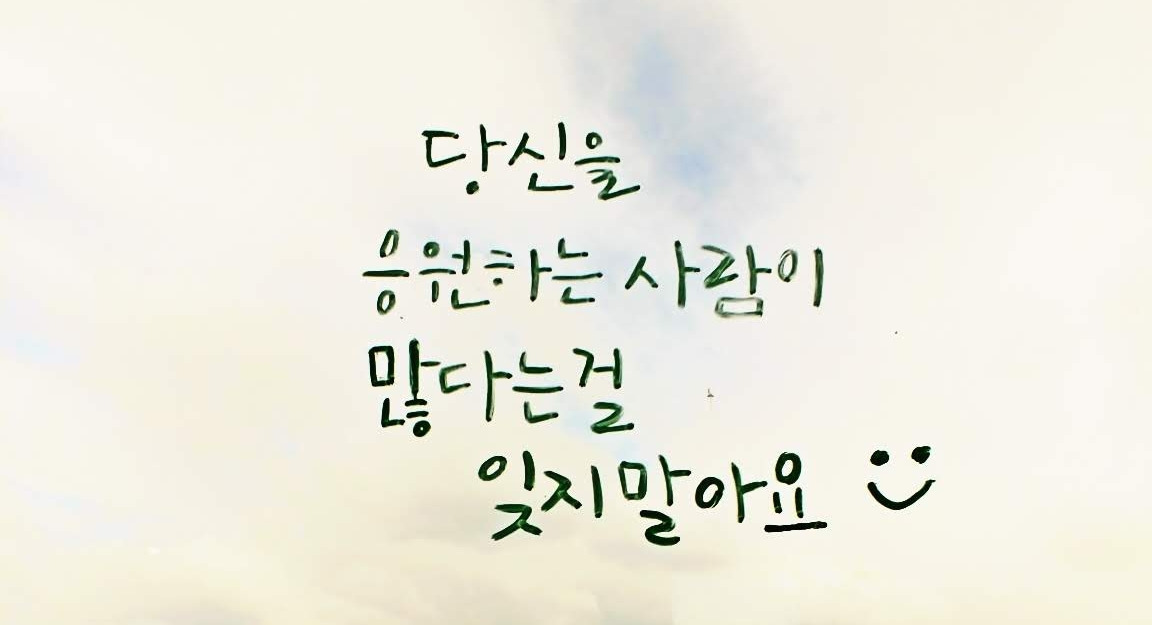 당신을
응원하는 사람이
많다는걸
잊지말아요